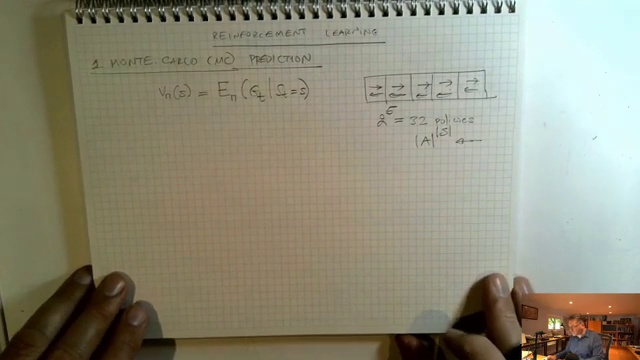 REINFORCEMENT LEARNING
1. MONTE-CARLO (MC) PREDICTION
Vπ(s) = Eπ(Gt | St = s)
2^5 = 32 policies
|A|^|S| ←